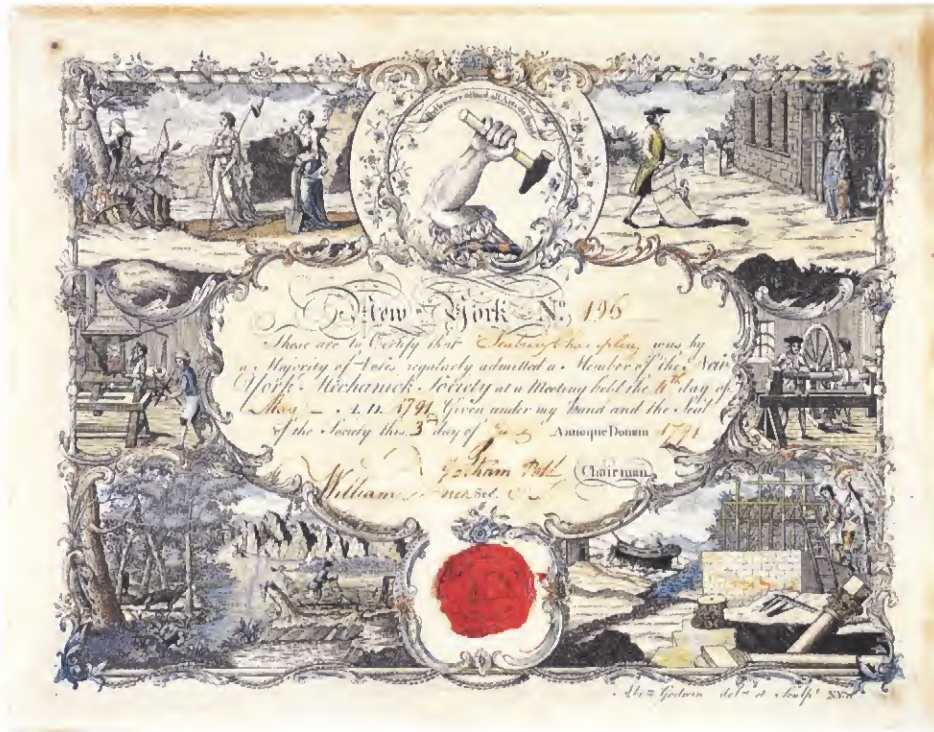 By Hammer & Hand all Arts do Stand
New York No. 196
These are to Certify that Seabury Champlin was by
a Majority of Votes, regularly admitted a Member of the New
York Mechanick Society at a Meeting held the 4th day of
May A.D. 1791 Given under my hand and the Seal
of the Society this 3d day of Annoque Domini 1791
Chairman
William Sec.
Abm. Godwin delt. et Sculpt. N.Y.